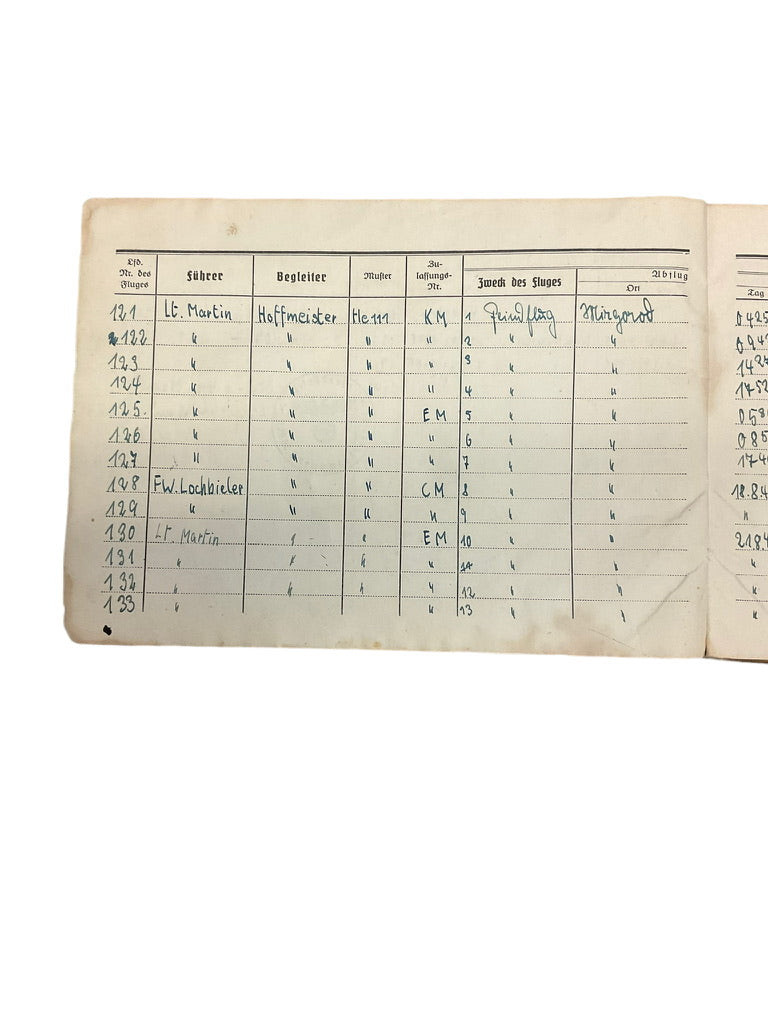 Lfd. Nr. des Fluges Führer Begleiter Muster Zu-lassungs-Nr. Zweck des Fluges Abflug Ort Tag
121 Lt. Martin Hoffmeister He 111 KM 1 Feindflug Mirgorod
122 " " " " 2 " "
123 " " " " 3 " "
124 " " " " 4 " "
125. " " " EM 5 " "
126 " " " " 6 " "
127 " " " " 7 " "
128 FW. Lochbieler " " CM 8 " "
129 " " " " 9 " " "
130 Lt. Martin " " EM 10 " "
131 " " " " " " "
132 " " " " 12 " " "
133 " " 13 " " "